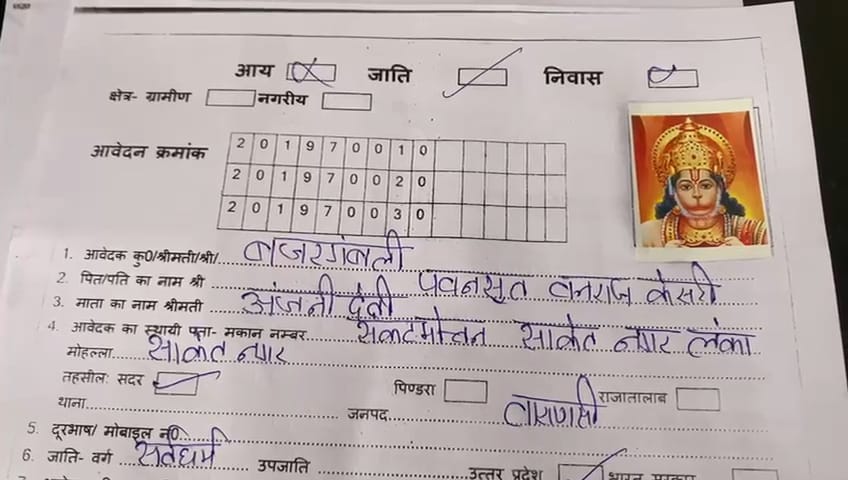 आय जाति निवास
क्षेत्र- ग्रामीण नगरीय
आवेदन क्रमांक
2 0 1 9 7 0 0 1 0
2 0 1 9 7 0 0 2 0
2 0 1 9 7 0 0 3 0
1. आवेदक कु0/श्रीमती/श्री/ बजरंगबली
2. पिता/पति का नाम श्री पवनसुत वनराज केसरी
3. माता का नाम श्रीमती अंजनी देवी
4. आवेदक का स्थायी पता- मकान नम्बर संकटमोचन साकेत नगर लंका
मोहल्ला साकेत नगर
तहसीलः सदर पिण्डरा राजातालाब
थाना जनपद वाराणसी
5. दूरभाष/ मोबाइल न0
6. जाति- वर्ग सर्वधर्म उपजाति उत्तर प्रदेश भारत सरकार